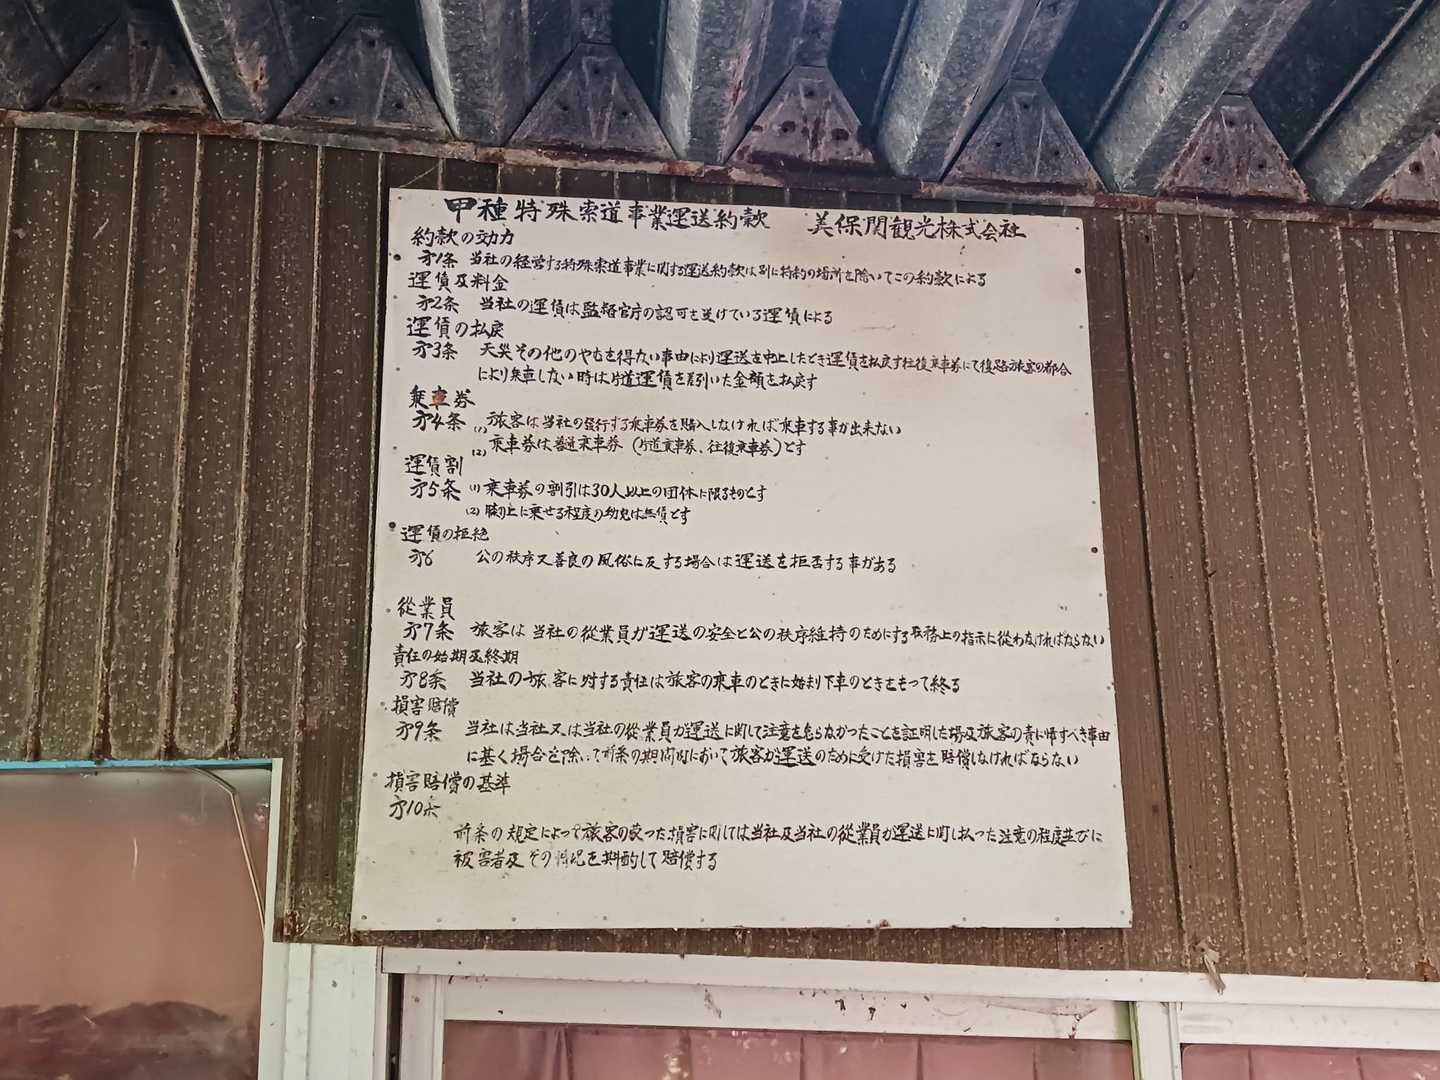 甲種特殊索道事業運送約款 美保関観光株式会社
約款の効力
才1条 当社の経営する特殊索道事業に関する運送約款は別に特約の場所を除いてこの約款による
運賃及料金
才2条 当社の運賃は監督官庁の認可を受けている運賃による
運賃の払戻
才3条 天災その他のやむを得ない事由により運送を中止したとき運賃を払戻す往復乗車券にて復路旅客の都合
により乗車しない時は片道運賃を差引いた金額を払戻す
乗車券
才4条 (1) 旅客は当社の発行する乗車券を購入しなければ乗車する事が出来ない
(2) 乗車券は普通乗車券 (片道乗車券、往復乗車券)とす
運賃割
才5条 (1) 乗車券の割引は30人以上の団体に限るものとす
(2) 膝上に乗せる程度の幼児は無賃とす
運賃の拒絶
才6 公の秩序又善良の風俗に反する場合は運送を拒否する事がある
従業員
才7条 旅客は当社の従業員が運送の安全と公の秩序維持のためにする職務上の指示に従わなければならない
責任の始期及終期
才8条 当社の旅客に対する責任は旅客の乗車のときに始まり下車のときをもって終る
損害賠償
才9条 当社は当社又は当社の従業員が運送に関して注意を怠らなかったことを証明した場及旅客の責に帰すべき事由
に基く場合を除いて前条の期間内において旅客が運送のために受けた損害を賠償しなければならない
損害賠償の基準
才10条
前条の規定によって旅客の被った損害に対しては当社及当社の従業員が運送に関し払った注意の程度並びに
被害者及その を斟酌して賠償する